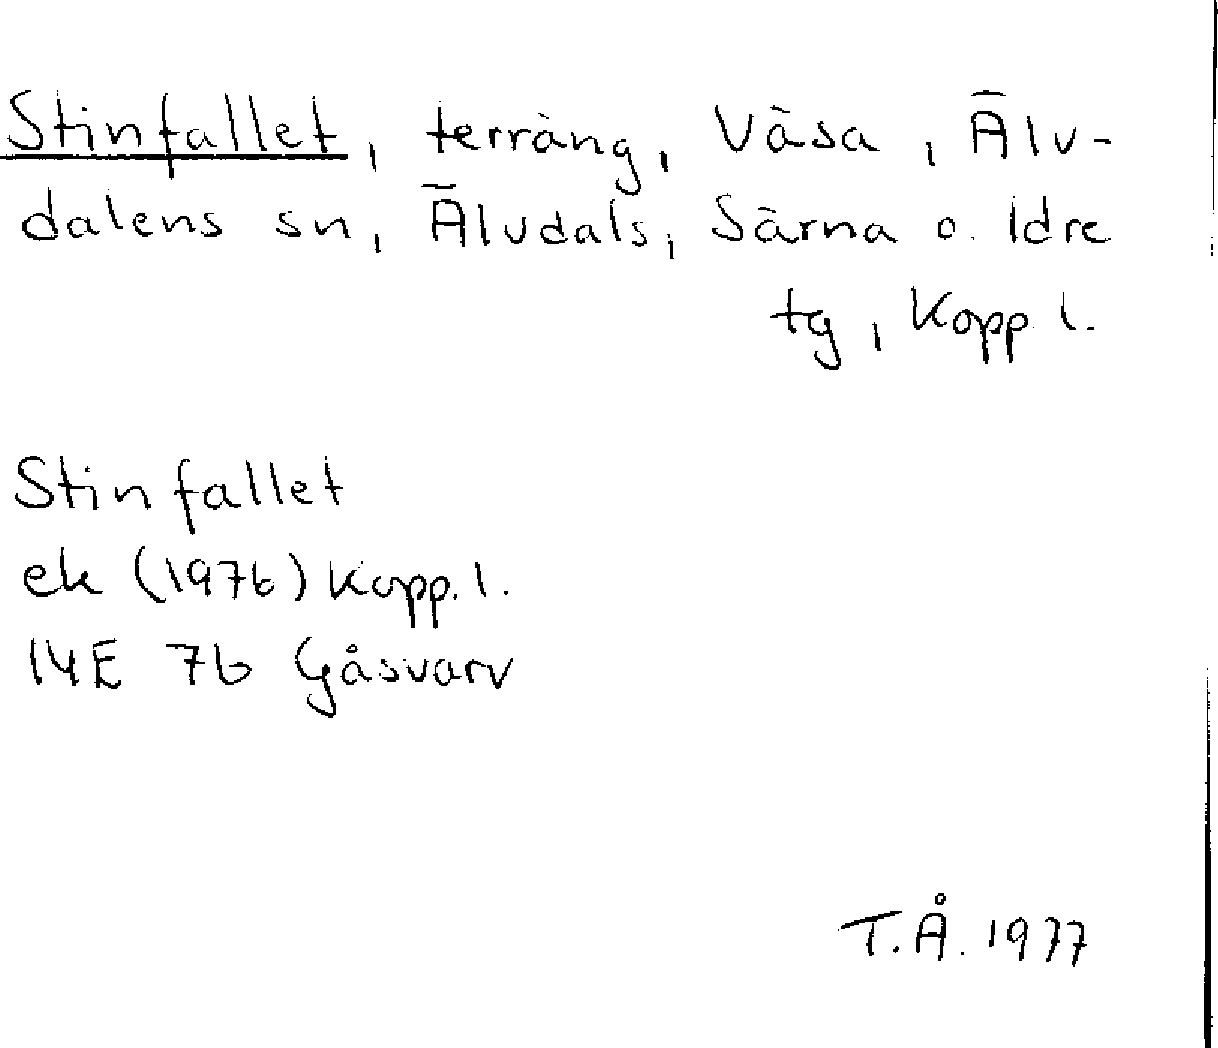 Stinfallet, terräng, Väsa, Älv-
dalens sn, Älvdals, Särna o. Idre
tg, Kopp l.
Stinfallet
ek (1976) Kopp. l.
14E 7b Gåsvarv
T.Å. 1977